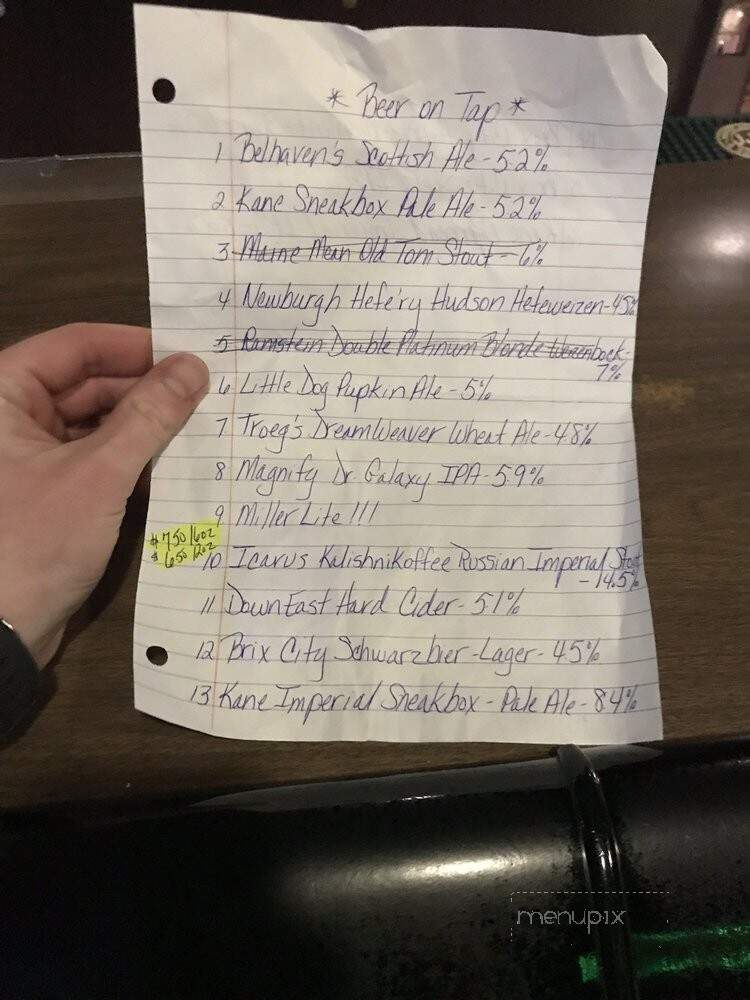 * Beer on Tap *
1 Belhaven's Scottish Ale - 5.2%
2 Kane Sneakbox Pale Ale - 5.2%
3 Maine Mean Old Tom Stout - 6%
4 Newburgh Hefe'ry Hudson Hefeweizen - 4.5%
5 Ramstein Double Platinum Blonde Weizenbock -
7%
6 Little Dog Pupkin Ale - 5%
7 Troeg's DreamWeaver Wheat Ale - 4.8%
8 Magnify Dr. Galaxy IPA - 5.9%
9 Miller Lite!!!
$7.50/16oz
$6.50/12oz
10 Icarus Kalishnikoffee Russian Imperial Stout
- 14.5%
11 DownEast Hard Cider - 5.1%
12 Brix City Schwarzbier - Lager - 4.5%
13 Kane Imperial Sneakbox - Pale Ale - 8.4%
menupix